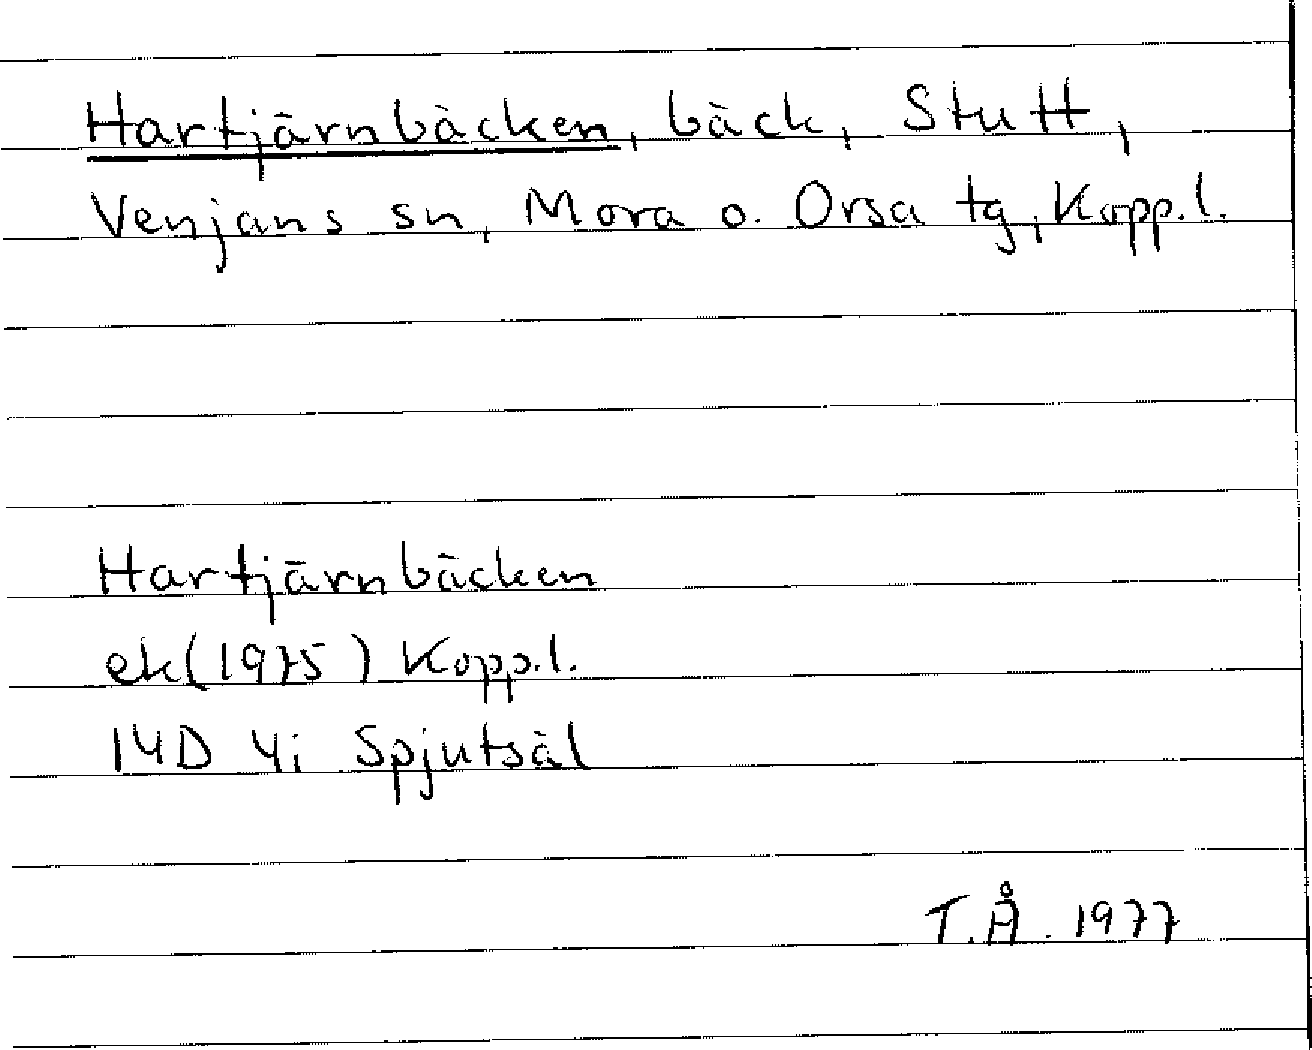 Hartjärnbäcken, bäck, Stutt,
Venjans sn, Mora o. Orsa tg, Kopp.l.
Hartjärnbäcken
ek(1975) Kopp.l.
14D 4i Spjutsäl
T.Å. 1977